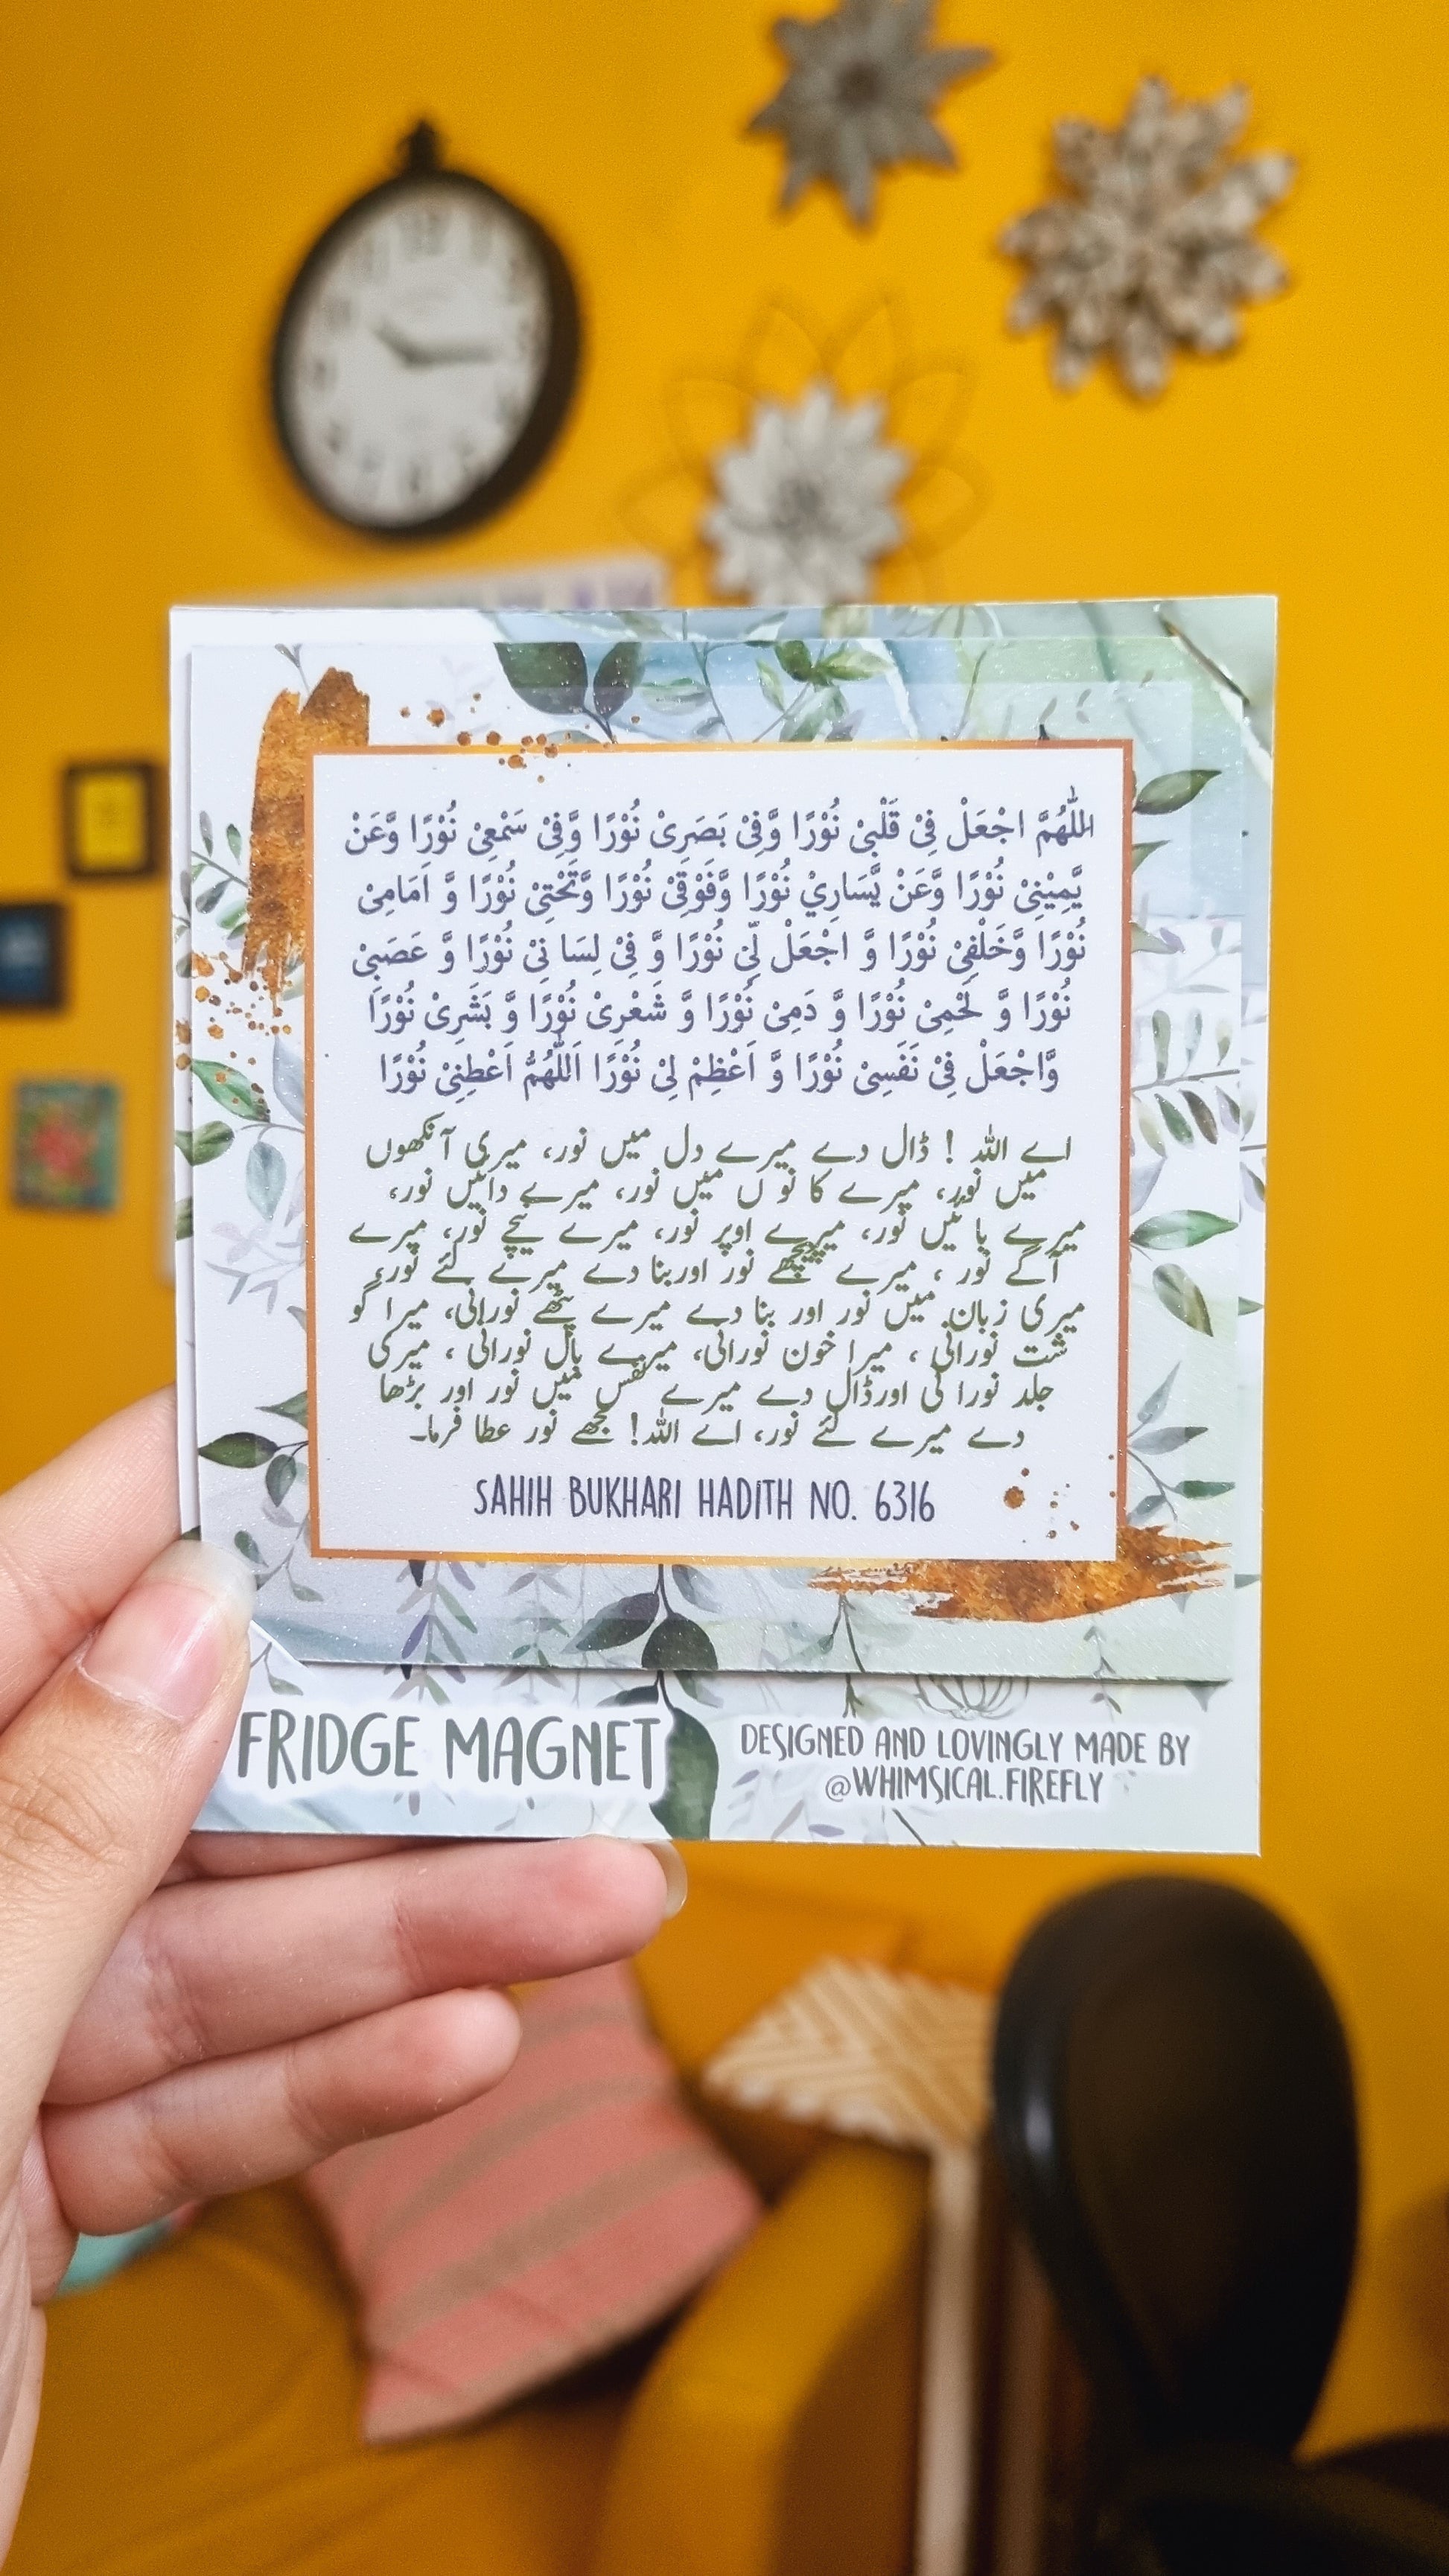 اللّٰهُمَّ اجْعَلْ فِیْ قَلْبِیْ نُوْرًا وَّفِیْ بَصَرِیْ نُوْرًا وَّفِیْ سَمْعِیْ نُوْرًا وَّعَنْ
یَّمِیْنِیْ نُوْرًا وَّعَنْ یَّسَارِيْ نُوْرًا وَّفَوْقِیْ نُوْرًا وَّتَحْتِیْ نُوْرًا وَّ اَمَامِیْ
نُوْرًا وَّخَلْفِیْ نُوْرًا وَّ اجْعَلْ لِّیْ نُوْرًا وَّ فِیْ لِسَا نِیْ نُوْرًا وَّ عَصَبِیْ
نُوْرًا وَّ لَحْمِیْ نُوْرًا وَّ دَمِیْ نُوْرًا وَّ شَعْرِیْ نُوْرًا وَّ بَشَرِیْ نُوْرًا
وَّاجْعَلْ فِیْ نَفَسِیْ نُوْرًا وَّ اَعْظِمْ لِیْ نُوْرًا اَللّٰهُمَّ اَعْطِنِیْ نُوْرًا
اے اللہ ! ڈال دے میرے دل میں نور، میری آنکھوں
میں نور، میرے کا نو ں میں نور، میرے دائیں نور،
میرے با ئیں نور، میرے اوپر نور، میرے نیچے نور، میرے
آگے نور ، میرے پیچھے نور اوربنا دے میرے لئے نور،
میری زبان میں نور اور بنا دے میرے پٹھے نورانی، میرا گو
شت نورانی ، میرا خون نورانی، میرے بال نورانی ، میری
جلد نورا نی اورڈال دے میرے نفس میں نور اور بڑھا
دے میرے لئے نور، اے اللہ! مجھے نور عطا فرما۔
SAHIH BUKHARI HADITH NO. 6316
FRIDGE MAGNET
DESIGNED AND LOVINGLY MADE BY
@WHIMSICAL.FIREFLY